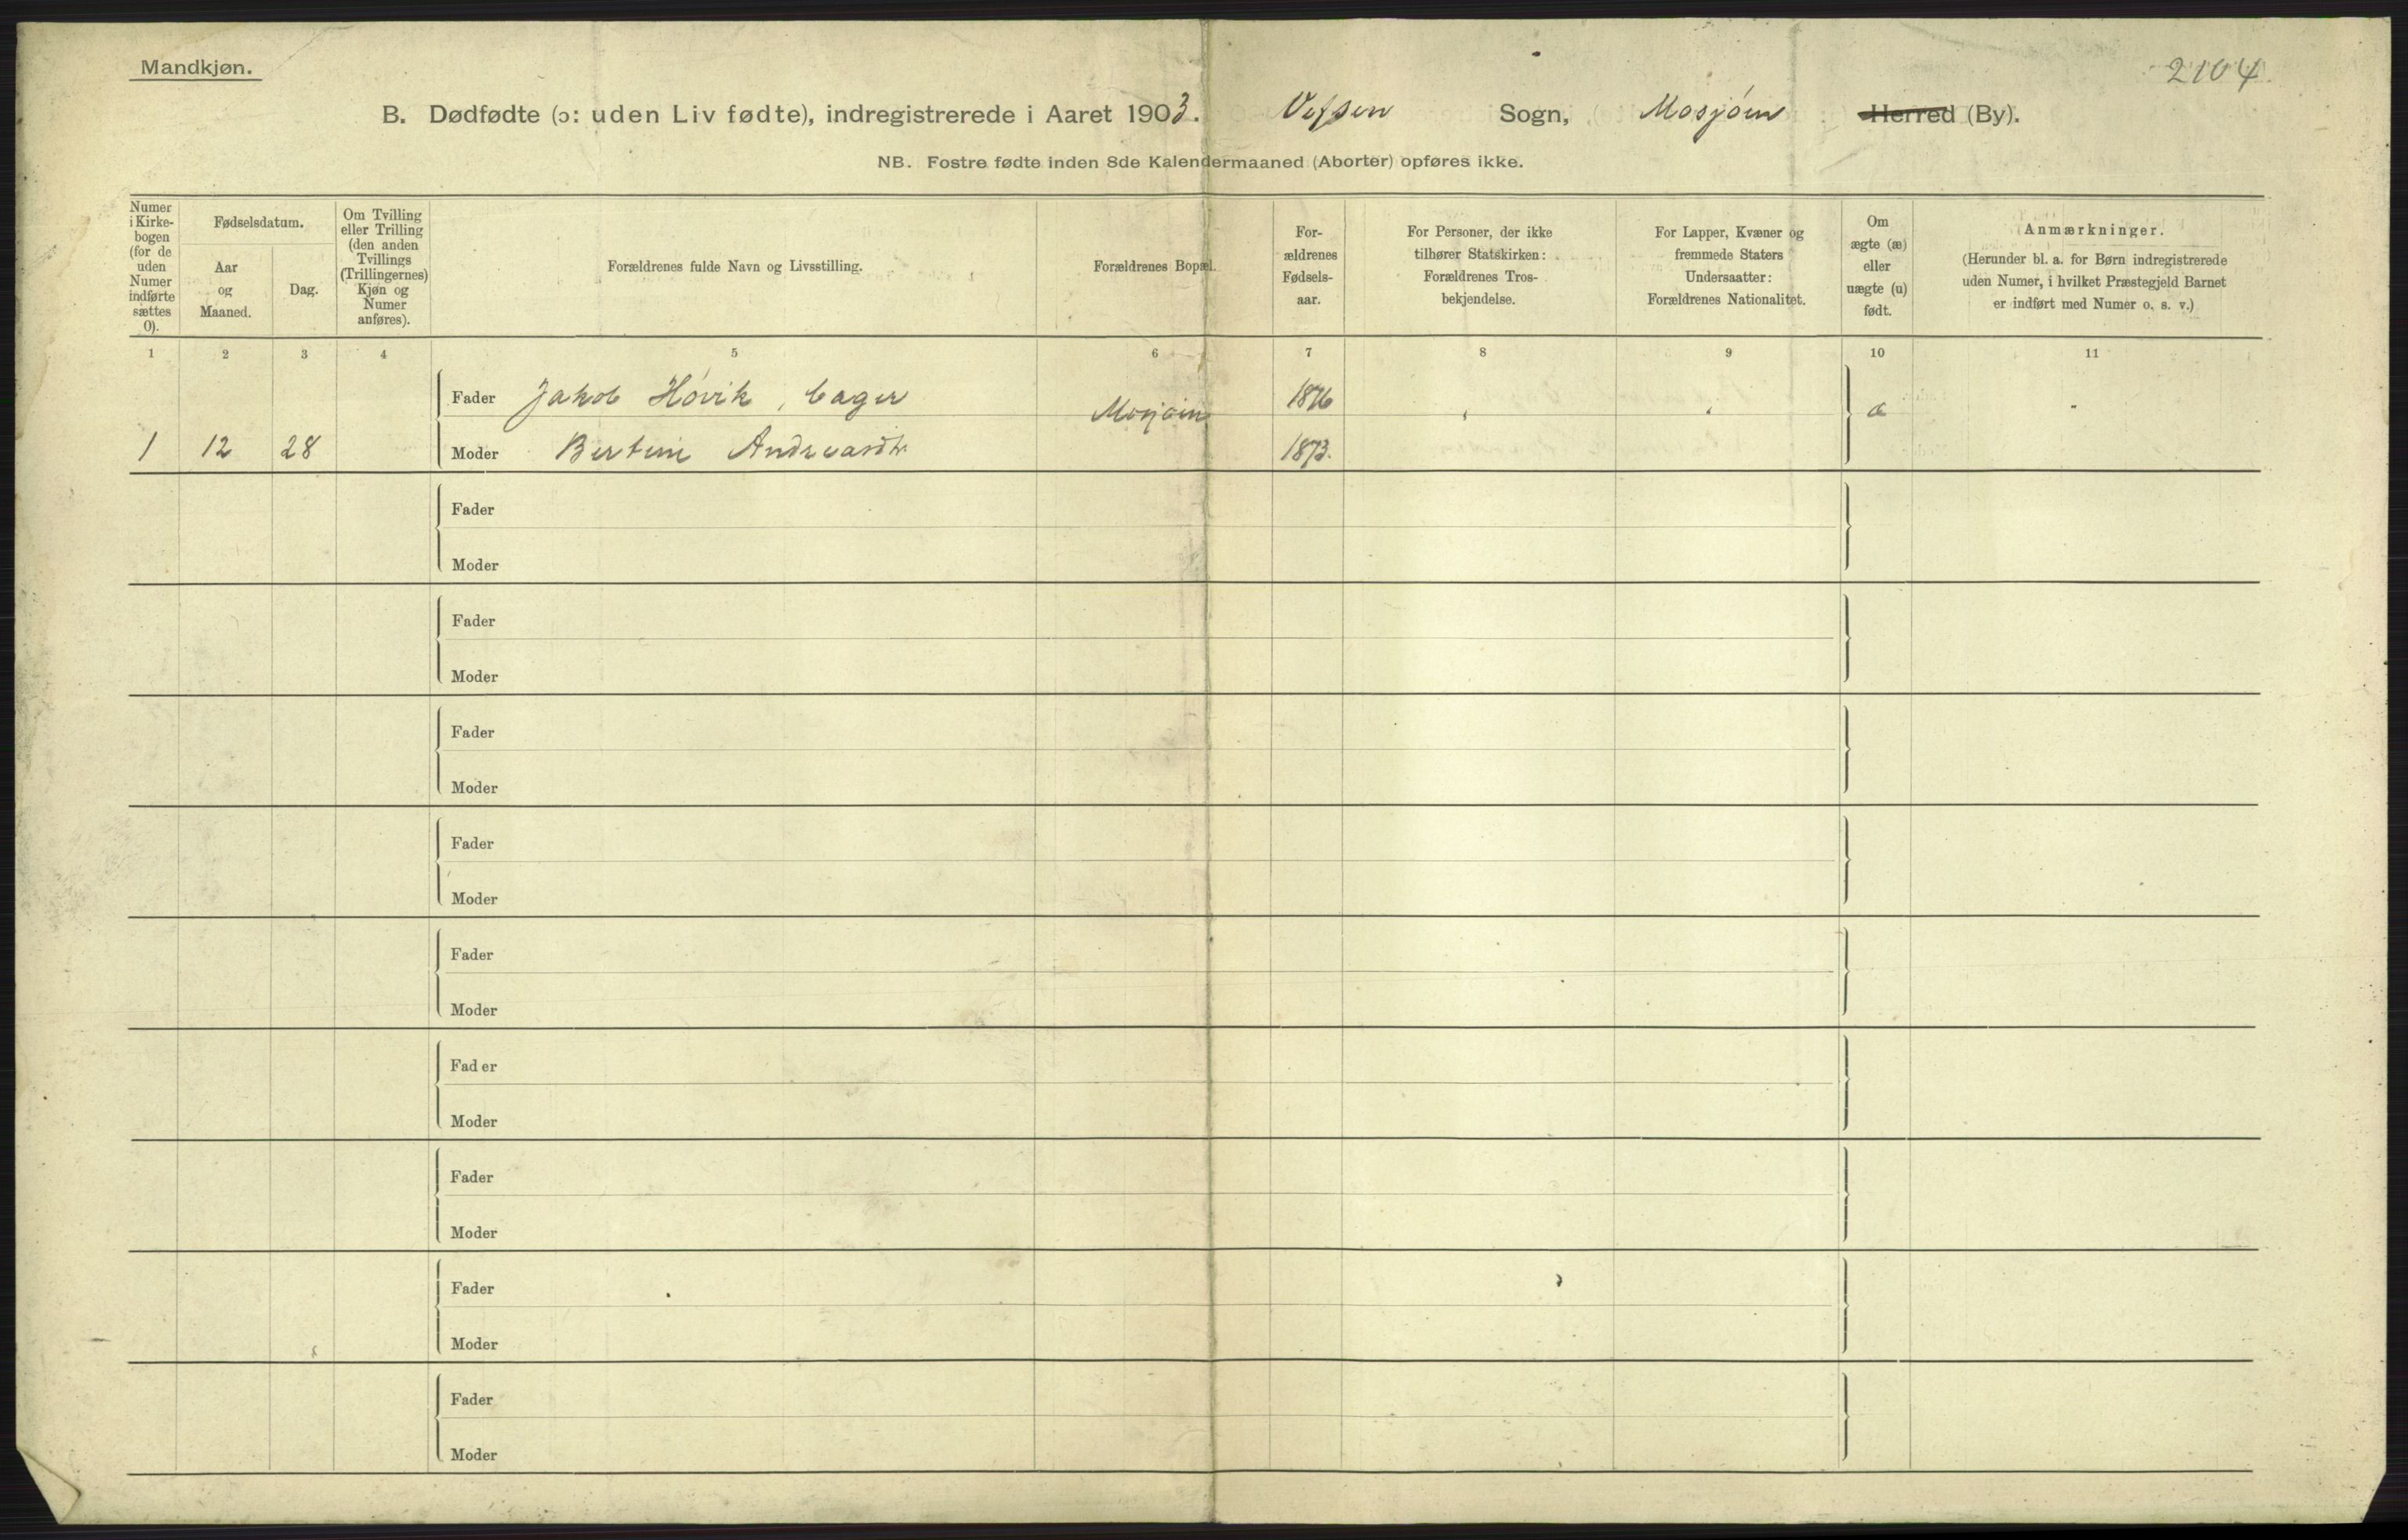 Mandkjøn.
2104.
B. Dødfødte (ɔ: uden Liv fødte), indregistrerede i Aaret 1903. Vefsen Sogn, Mosjøen Herred (By).
NB. Fostre fødte inden 8de Kalendermaaned (Aborter) opføres ikke.
Numer
i Kirke-
bogen
(for de
uden
Numer
indførte
sættes
0).
Fødselsdatum.
Aar
og
Maaned.
Dag.
Om Tvilling
eller Trilling
(den anden
Tvillings
(Trillingernes)
Kjøn og
Numer
anføres).
Forældrenes fulde Navn og Livsstilling.
Forældrenes Bopæl.
For-
ældrenes
Fødsels-
aar.
For Personer, der ikke
tilhører Statskirken:
Forældrenes Tros-
bekjendelse.
For Lapper, Kvæner og
fremmede Staters
Undersaatter:
Forældrenes Nationalitet.
Om
ægte (æ)
eller
uægte (u)
født.
Anmærkninger.
(Herunder bl. a. for Børn indregistrerede
uden Numer, i hvilket Præstegjeld Barnet
er indført med Numer o. s. v.)
1 2 3 4 5 6 7 8 9 10 11
Fader Jakob Høvik, bager Mosjøen 1876 æ
1 12 28 Moder Bertine Andreasdtr. 1873.
Fader
Moder
Fader
Moder
Fader
Moder
Fader
Moder
Fader
Moder
Fader
Moder
Fader
Moder
Fader
Moder
Fader
Moder